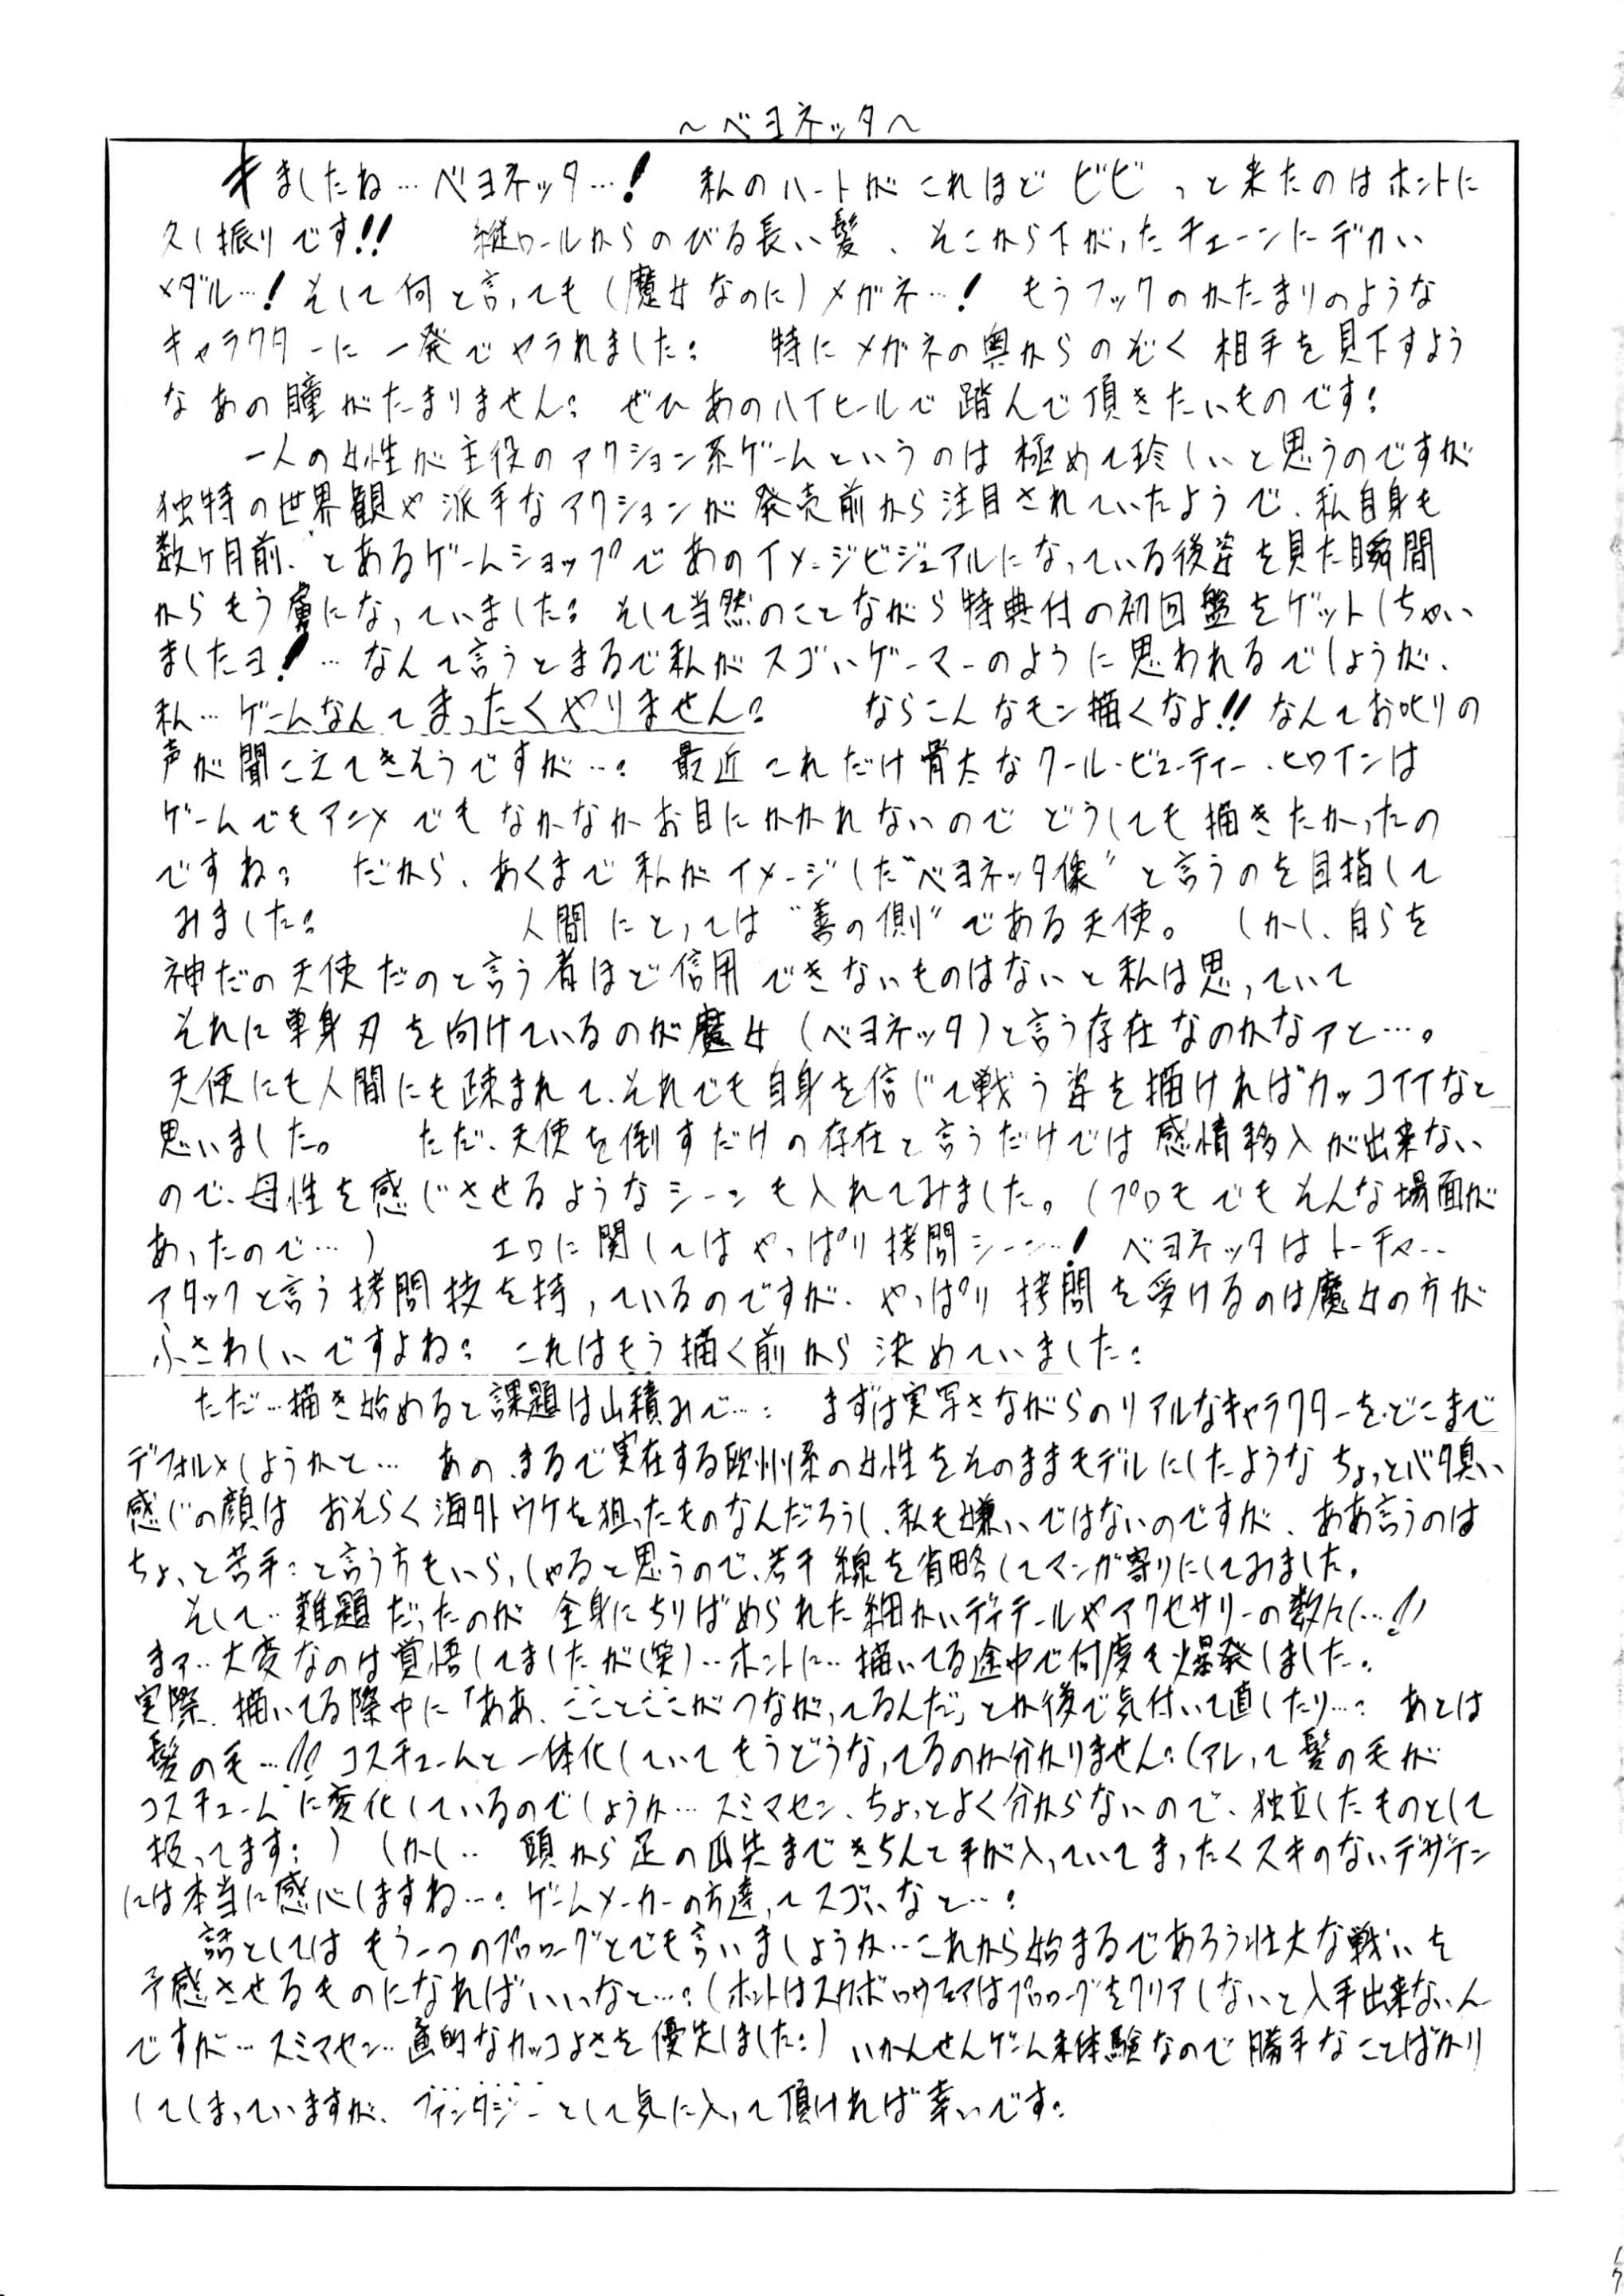 ～ベヨネッタ～
キましたね…ベヨネッタ…！ 私のハートがこれほどビビっと来たのはホントに
久し振りです!! 縦ロールからのびる長い髪、そこから下がったチェーンにデカい
メダル…！そして何と言っても（魔女なのに）メガネ…！ もうフックのかたまりのような
キャラクターに一発でヤラれました： 特にメガネの奥からのぞく相手を見下すよう
なあの瞳がたまりません： ぜひあのハイヒールで踏んで頂きたいものです：
一人の女性が主役のアクション系ゲームというのは極めて珍しいと思うのですが
独特の世界観や派手なアクションが発売前から注目されていたようで、私自身も
数ヶ月前、とあるゲームショップであのイメージビジュアルになっている後姿を見た瞬間
からもう虜になっていました： そして当然のことながら特典付の初回盤をゲットしちゃい
ましたヨ！…なんて言うとまるで私がスゴいゲーマーのように思われるでしょうが、
私…ゲームなんてまったくやりません： ならこんなモン描くなよ!! なんてお叱りの
声が聞こえてきそうですが…： 最近これだけ骨太なクール・ビューティー・ヒロインは
ゲームでもアニメでもなかなかお目にかかれないのでどうしても描きたかったの
ですね： だから、あくまで私がイメージした“ベヨネッタ像”と言うのを目指して
みました： 人間にとっては“善の側”である天使。 しかし、自らを
神だの天使だのと言う者ほど信用できないものはないと私は思っていて
それに単身刃を向けているのが魔女（ベヨネッタ）と言う存在なのかなァと…。
天使にも人間にも疎まれて、それでも自身を信じて戦う姿を描ければカッコイイなと
思いました。 ただ、天使を倒すだけの存在と言うだけでは感情移入が出来ない
ので、母性を感じさせるようなシーンも入れてみました。（プロモでもそんな場面が
あったので…） エロに関してはやっぱり拷問シーン…！ ベヨネッタはトーチャー
アタックと言う拷問技を持っているのですが、やっぱり拷問を受けるのは魔女の方が
ふさわしいですよね： これはもう描く前から決めていました：
ただ…描き始めると課題は山積みで…： まずは実写さながらのリアルなキャラクターを、どこまで
デフォルメしようかと… あの、まるで実在する欧州系の女性をそのままモデルにしたようなちょっとバタ臭い
感じの顔は おそらく海外ウケを狙ったものなんだろうし、私も嫌いではないのですが、ああ言うのは
ちょっと苦手：と言う方もいらっしゃると思うので、若干線を省略してマンガ寄りにしてみました。
そして…難題だったのが 全身にちりばめられた細かいディテールやアクセサリーの数々(…!!)
まァ…大変なのは覚悟してましたが（笑）…ホントに…描いてる途中で何度も爆発しました。
実際、描いてる際中に「ああ、こことここがつながってるんだ」とか後で気付いて直したり…： あとは
髪の毛…!! コスチュームと一体化していてもうどうなってるのか分かりません：（アレって髪の毛が
コスチュームに変化しているのでしょうか…スミマセン、ちょっとよく分からないので、独立したものとして
扱ってます：） しかし… 頭から足の爪先まできちんと手が入っていてまったくスキのないデザイン
には本当に感心しますね…：ゲームメーカーの方達ってスゴいなと…：
話としてはもう一つのプロローグとでも言いましょうか…これから始まるであろう壮大な戦いを
予感させるものになればいいなと…：（ホントはスカボロウフェアはプロローグをクリアしないと入手出来ないん
ですが…スミマセン…画的なカッコよさを優先しました：） いかんせんゲーム未体験なので勝手なことばかり
してしまっていますが、ファンタジーとして気に入って頂ければ幸いです：